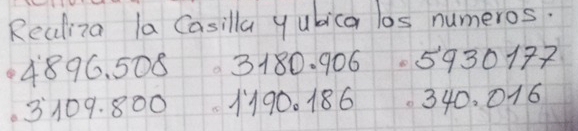 Realiza la Casilla y ubica los numeros.
.4'896.508 .3180.906 .5930177
.3'109.800 .1'190.186 .340.016